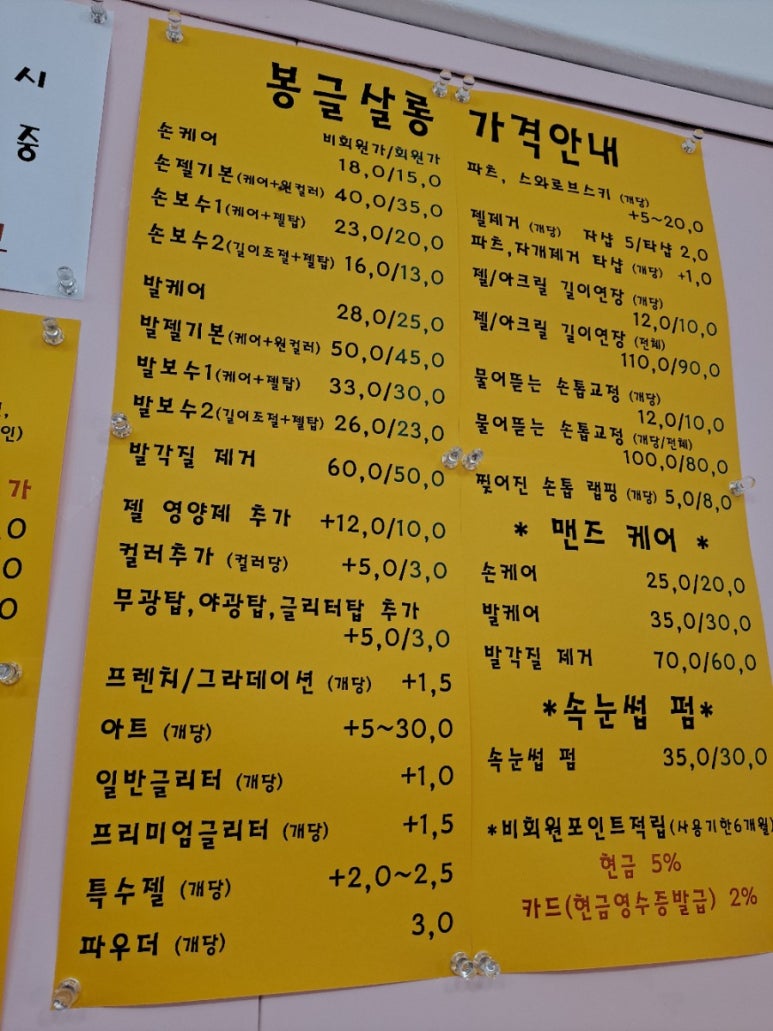 시
중
인)
가
0
0
0
봉글살롱 가격안내
비회원가/회원가
손케어 18,0/15,0
손젤기본(케어+원컬러) 40,0/35,0
손보수1(케어+젤탑) 23,0/20,0
손보수2(길이조절+젤탑) 16,0/13,0
발케어 28,0/25,0
발젤기본(케어+원컬러) 50,0/45,0
발보수1(케어+젤탑) 33,0/30,0
발보수2(길이조절+젤탑) 26,0/23,0
발각질 제거 60,0/50,0
젤 영양제 추가 +12,0/10,0
컬러추가 (컬러당) +5,0/3,0
무광탑,야광탑,글리터탑 추가
+5,0/3,0
프렌치/그라데이션 (개당) +1,5
아트 (개당) +5~30,0
일반글리터 (개당) +1,0
프리미엄글리터 (개당) +1,5
특수젤 (개당) +2,0~2,5
파우더 (개당) 3,0
파츠, 스와로브스키 (개당)
+5~20,0
젤제거 (개당) 자샵 5/타샵 2,0
파츠,자개제거 타샵 (개당) +1,0
젤/아크릴 길이연장 (개당)
12,0/10,0
젤/아크릴 길이연장 (전체)
110,0/90,0
물어뜯는 손톱교정 (개당)
12,0/10,0
물어뜯는 손톱교정 (개당/전체)
100,0/80,0
찢어진 손톱 랩핑 (개당) 5,0/8,0
* 맨즈 케어 *
손케어 25,0/20,0
발케어 35,0/30,0
발각질 제거 70,0/60,0
*속눈썹 펌*
속눈썹 펌 35,0/30,0
*비회원포인트적립(사용기한6개월)
현금 5%
카드(현금영수증발급) 2%